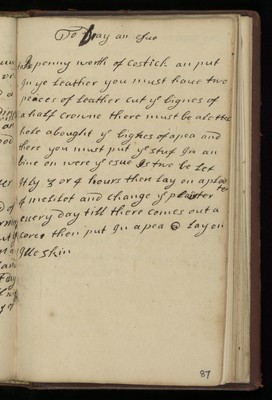 To Lay an esue
penny worth of Costick an put
In ye Leather you must have two
peaces of Leather cut ye bignes of
a half Crowne there must be a lettel
hole abought ye bignes of a pea and
there you must put ye stuf In an
bine on were ye esue Is two be Let
It ly 3 or 4 hours then lay on a plaster
of melelot and change ye plaister
every day till there comes out a
core then put In a pea Lay on
skin
87